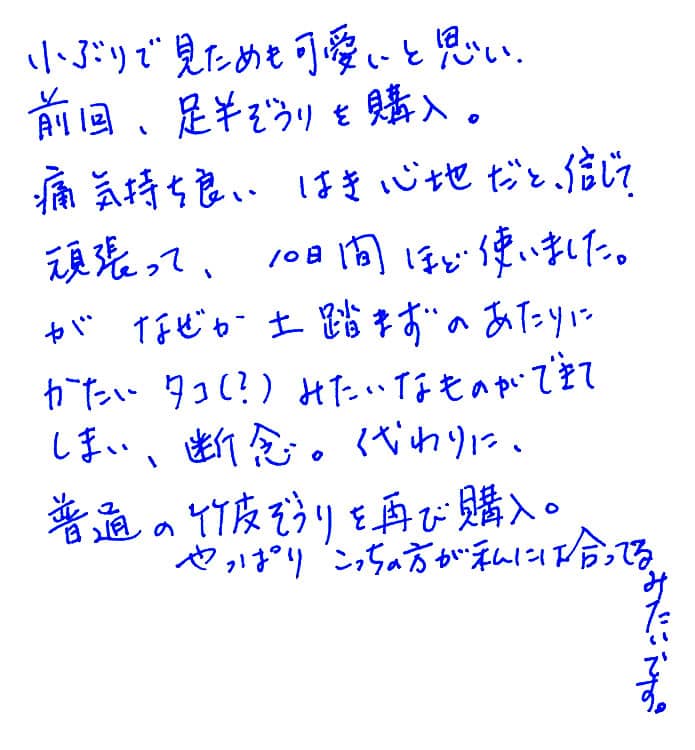 小ぶりで見ためも可愛いと思い、
前回、足半ぞうりを購入。
痛気持ち良い はき心地だと、信じて
頑張って、 10日間ほど使いました。
が なぜか 土踏まずのあたりに
かたい タコ(?)みたいなものができて
しまい、断念。代わりに、
普通の竹皮ぞうりを再び購入。
やっぱり こっちの方が私には合ってる
みたいです。